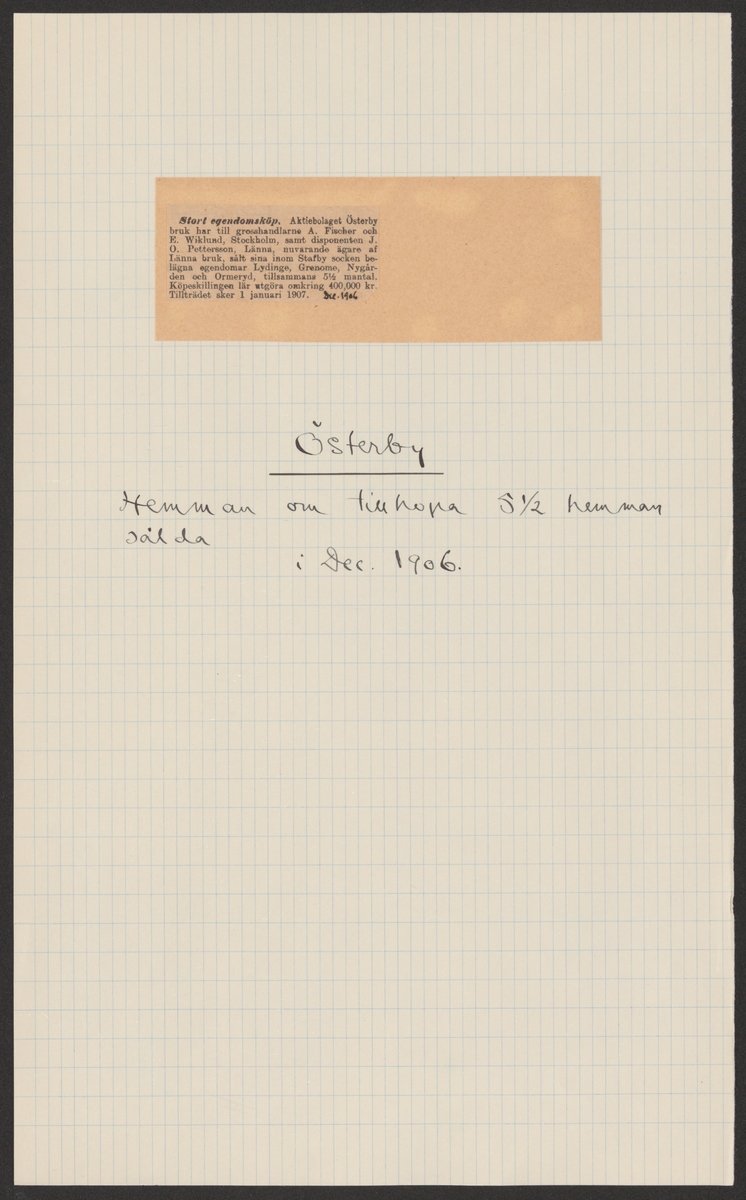 Stort egendomsköp. Aktiebolaget Österby
bruk har till grosshandlarne A. Fischer och
E. Wiklund, Stockholm, samt disponenten J.
O. Pettersson, Länna, nuvarande ägare af
Länna bruk, sålt sina inom Stafby socken be-
lägna egendomar Lydinge, Grenome, Nygår-
den och Ormeryd, tillsammans 5½ mantal.
Köpeskillingen lär utgöra omkring 400,000 kr.
Tillträdet sker 1 januari 1907. Dec. 1906
Österby
Hemman om tillhopa 5½ hemman
sålda
i Dec. 1906.